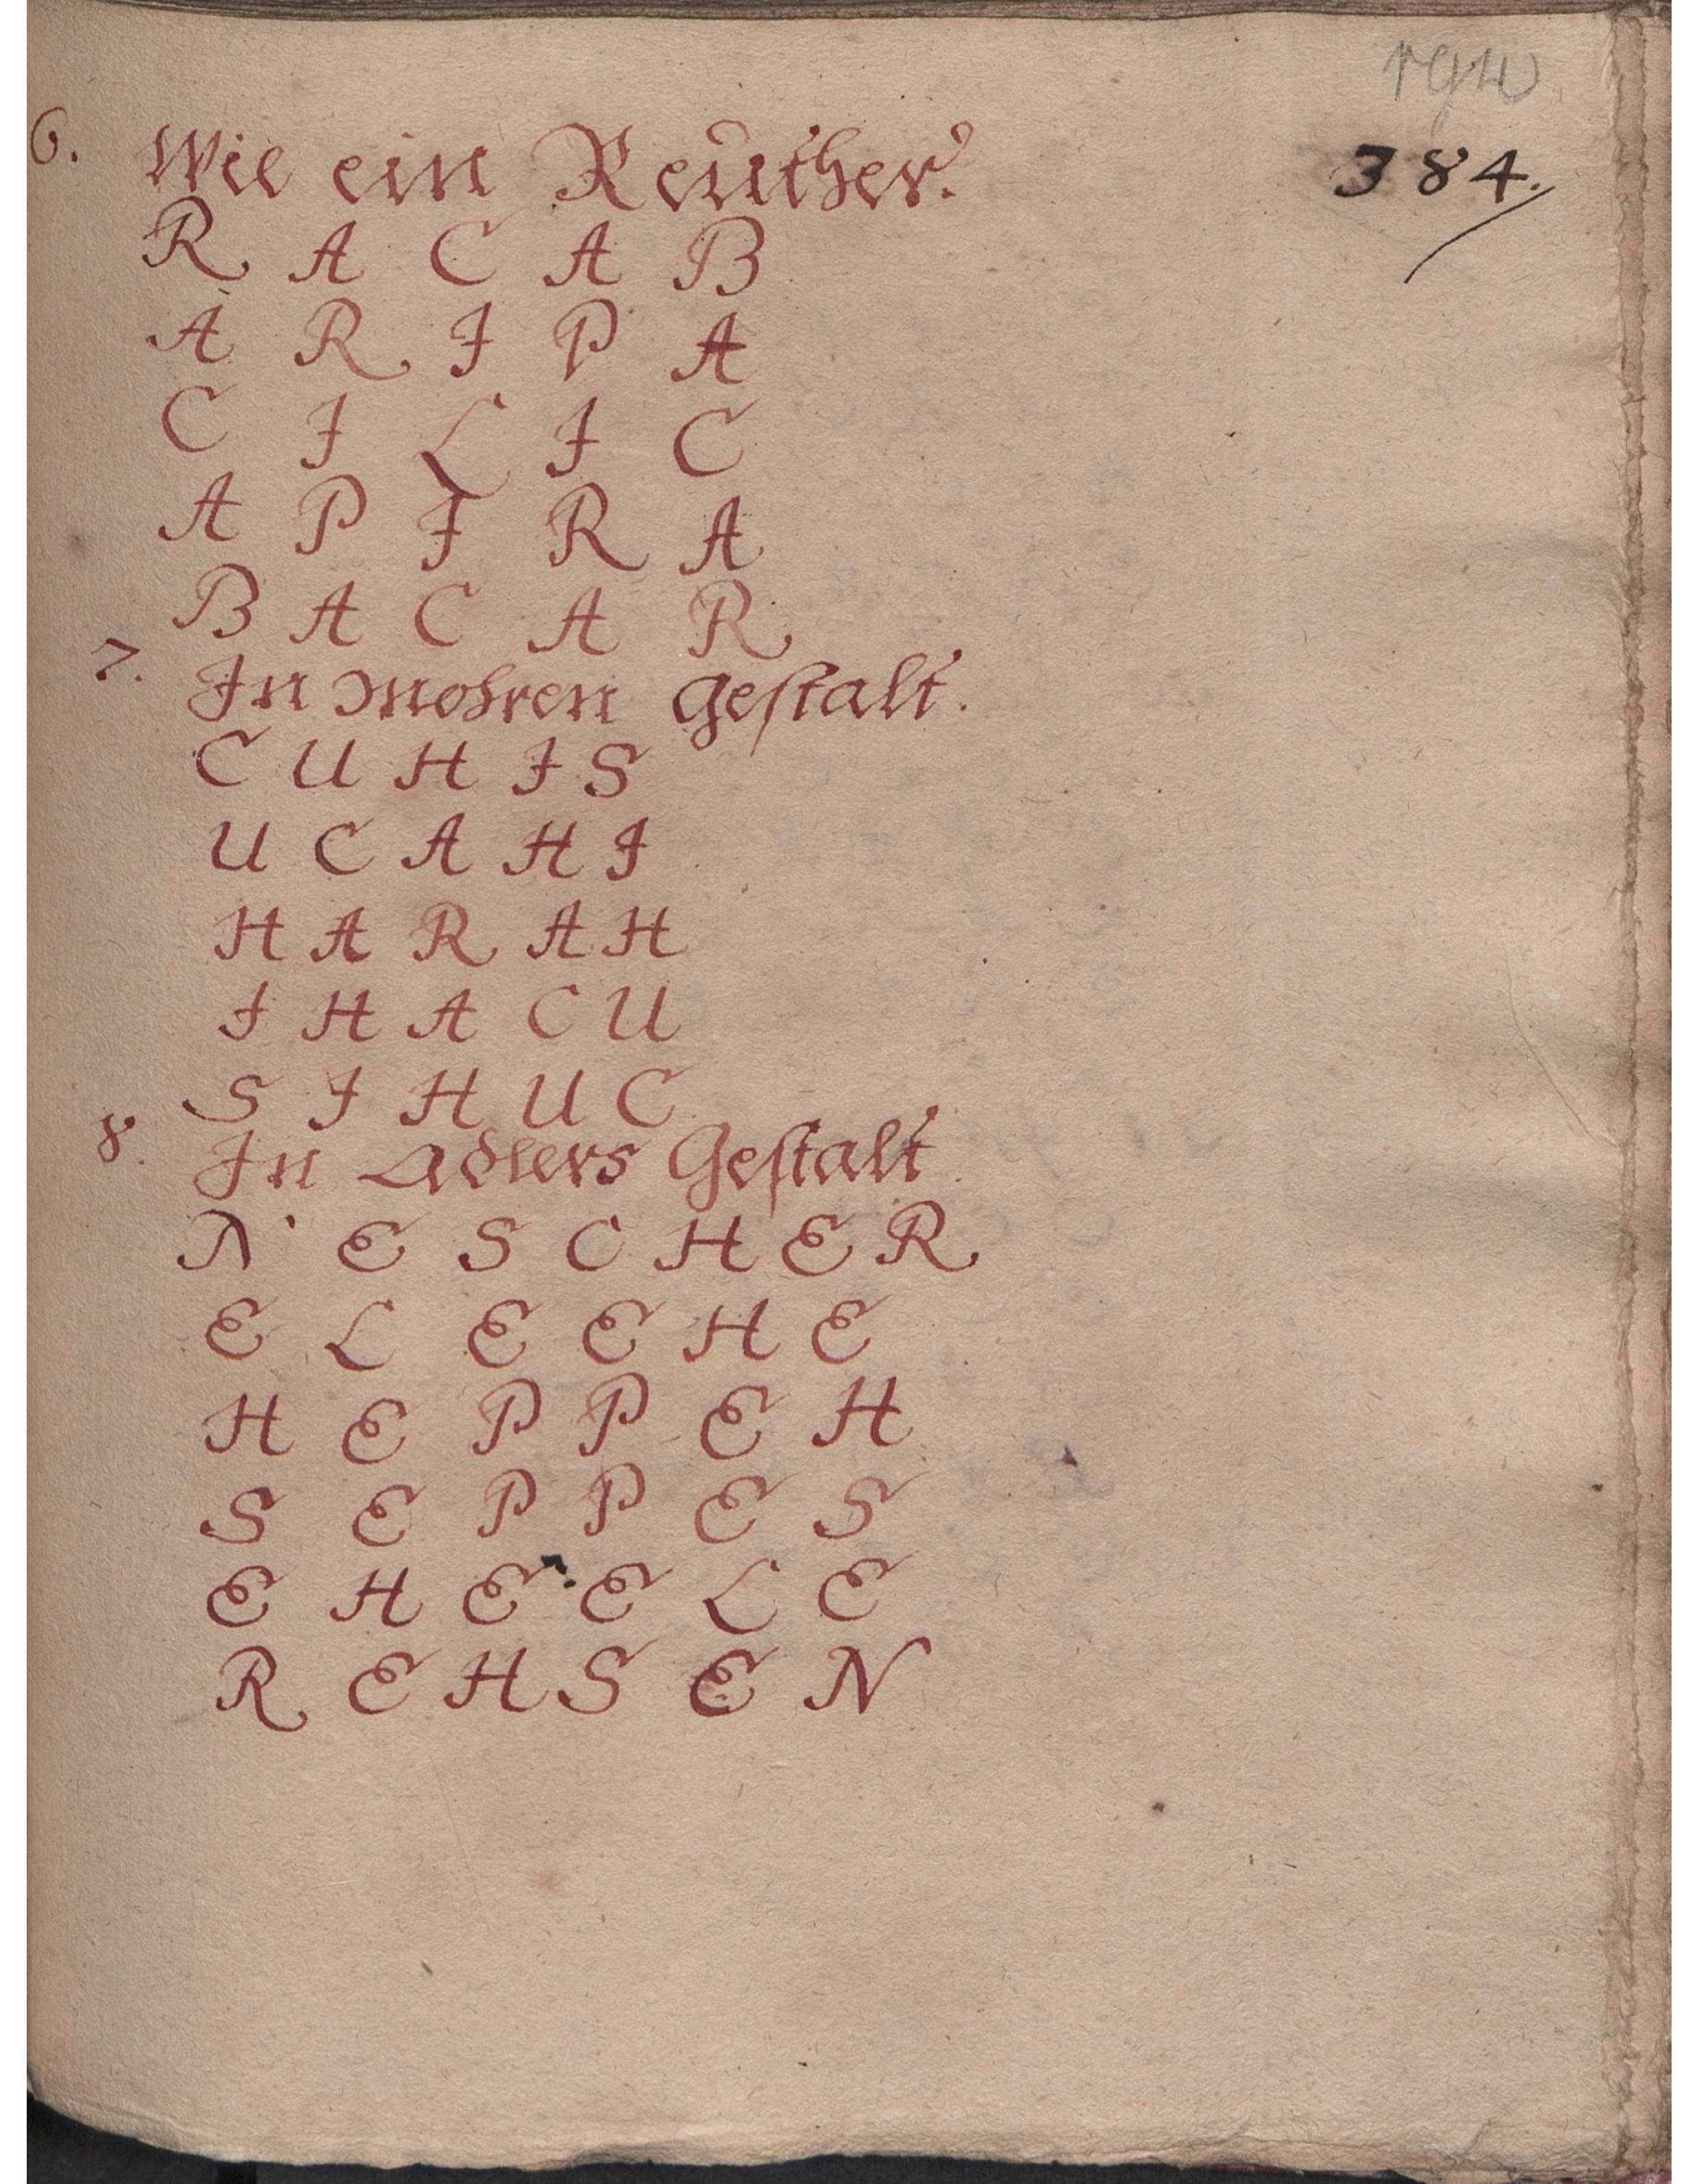 384.
6. Wie ein Reuther.
R A C A B
A R I P A
C I L I C
A P I R A
B A C A R
7. In Mohren gestalt.
C U H I S
U C A H I
H A R A H
I H A C U
S I H U C
8. In Adlers Gestalt.
N E S C H E R
E L E E H E
H E P P E H
S E P P E S
E H E E L E
R E H S E N